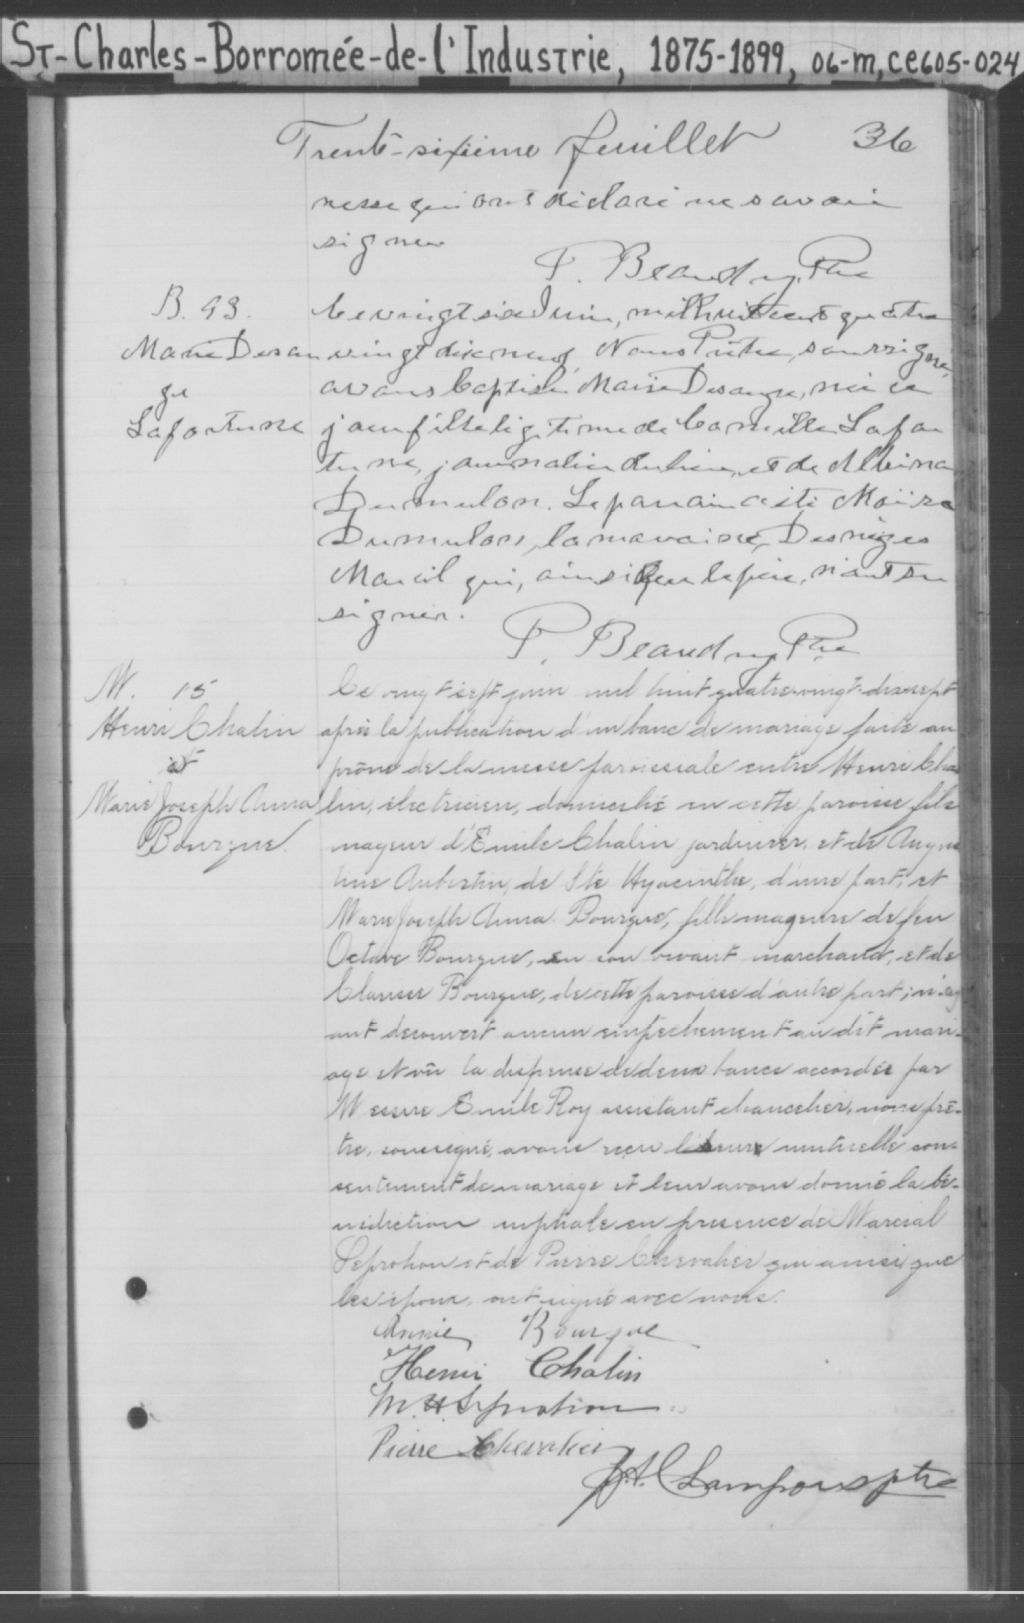 St-Charles-Borromée-de-l'Industrie, 1875-1899, 06-m, ce605-024
Trente-sixième feuillet 36
nesse qui ont déclaré ne savoir
signer
P. Beaudry, Ptre
B. 93.
Marie Desan
ge
Lafortune
Le vingt six Juin, mil huit cent quatre
vingt dix neuf, Nous Prêtre, soussigné,
avons baptisé Marie Desange, née ce
jour fille légitime de Camille Lafor
tune, journalier du lieu, et de Albina
Dumulon. Le parrain a été Moïse
Dumulon, la marraine, Desneiges
Marcil qui, ainsi que le père, n'ont su
signer.
P. Beaudry Ptre
M. 15
Henri Chalin
et
Marie Joseph Anna
Bourque.
Le vingt sept juin mil huit quatre-vingt-dix sept
après la publication d'un banc de mariage faite au
prône de la messe paroissiale entre Henri Cha
lin, électricien, domicilié en cette paroisse fils
mageur d'Emile Chalin jardinier, et de Augus
tine Aubertin, de Ste Hyacinthe, d'une part, et
Marie Joseph Anna Bourque, fille mageure de feu
Octave Bourque, en son vivant marchand, et de
Clarisse Bourque, de cette paroisse d'autre part; n'ay
ant découvert aucun empêchement au dit mari-
age et vu la dispense de deux bancs accordée par
Messire Emile Roy assistant chancelier, nous prê-
tre, soussigné, avons reçu leur mutuelle con-
sentement de mariage et leur avons donné la bé-
nédiction nuptiale en présence de Marcial
Leprohon et de Pierre Chevalier qui ainsi que
les époux, ont signé avec nous.
Annie Bourque
Henri Chalin
M. H. Leprohon
Pierre Chevalier
ptre